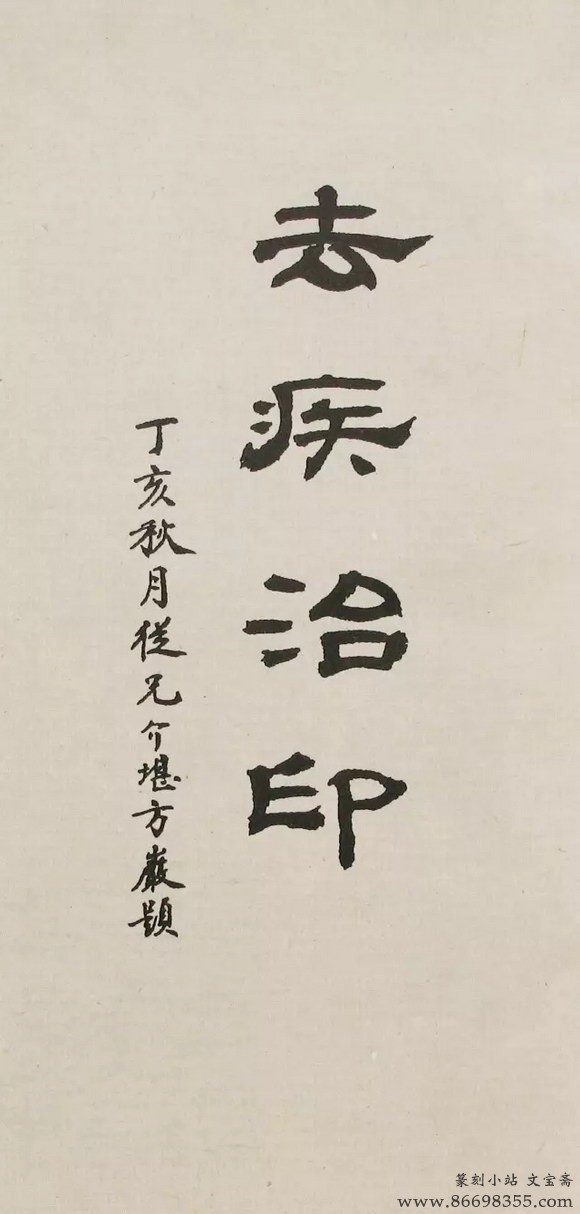 去疾治印
丁亥秋月從兄介堪方巖題
篆刻小站 文宝斋
www.86698355.com